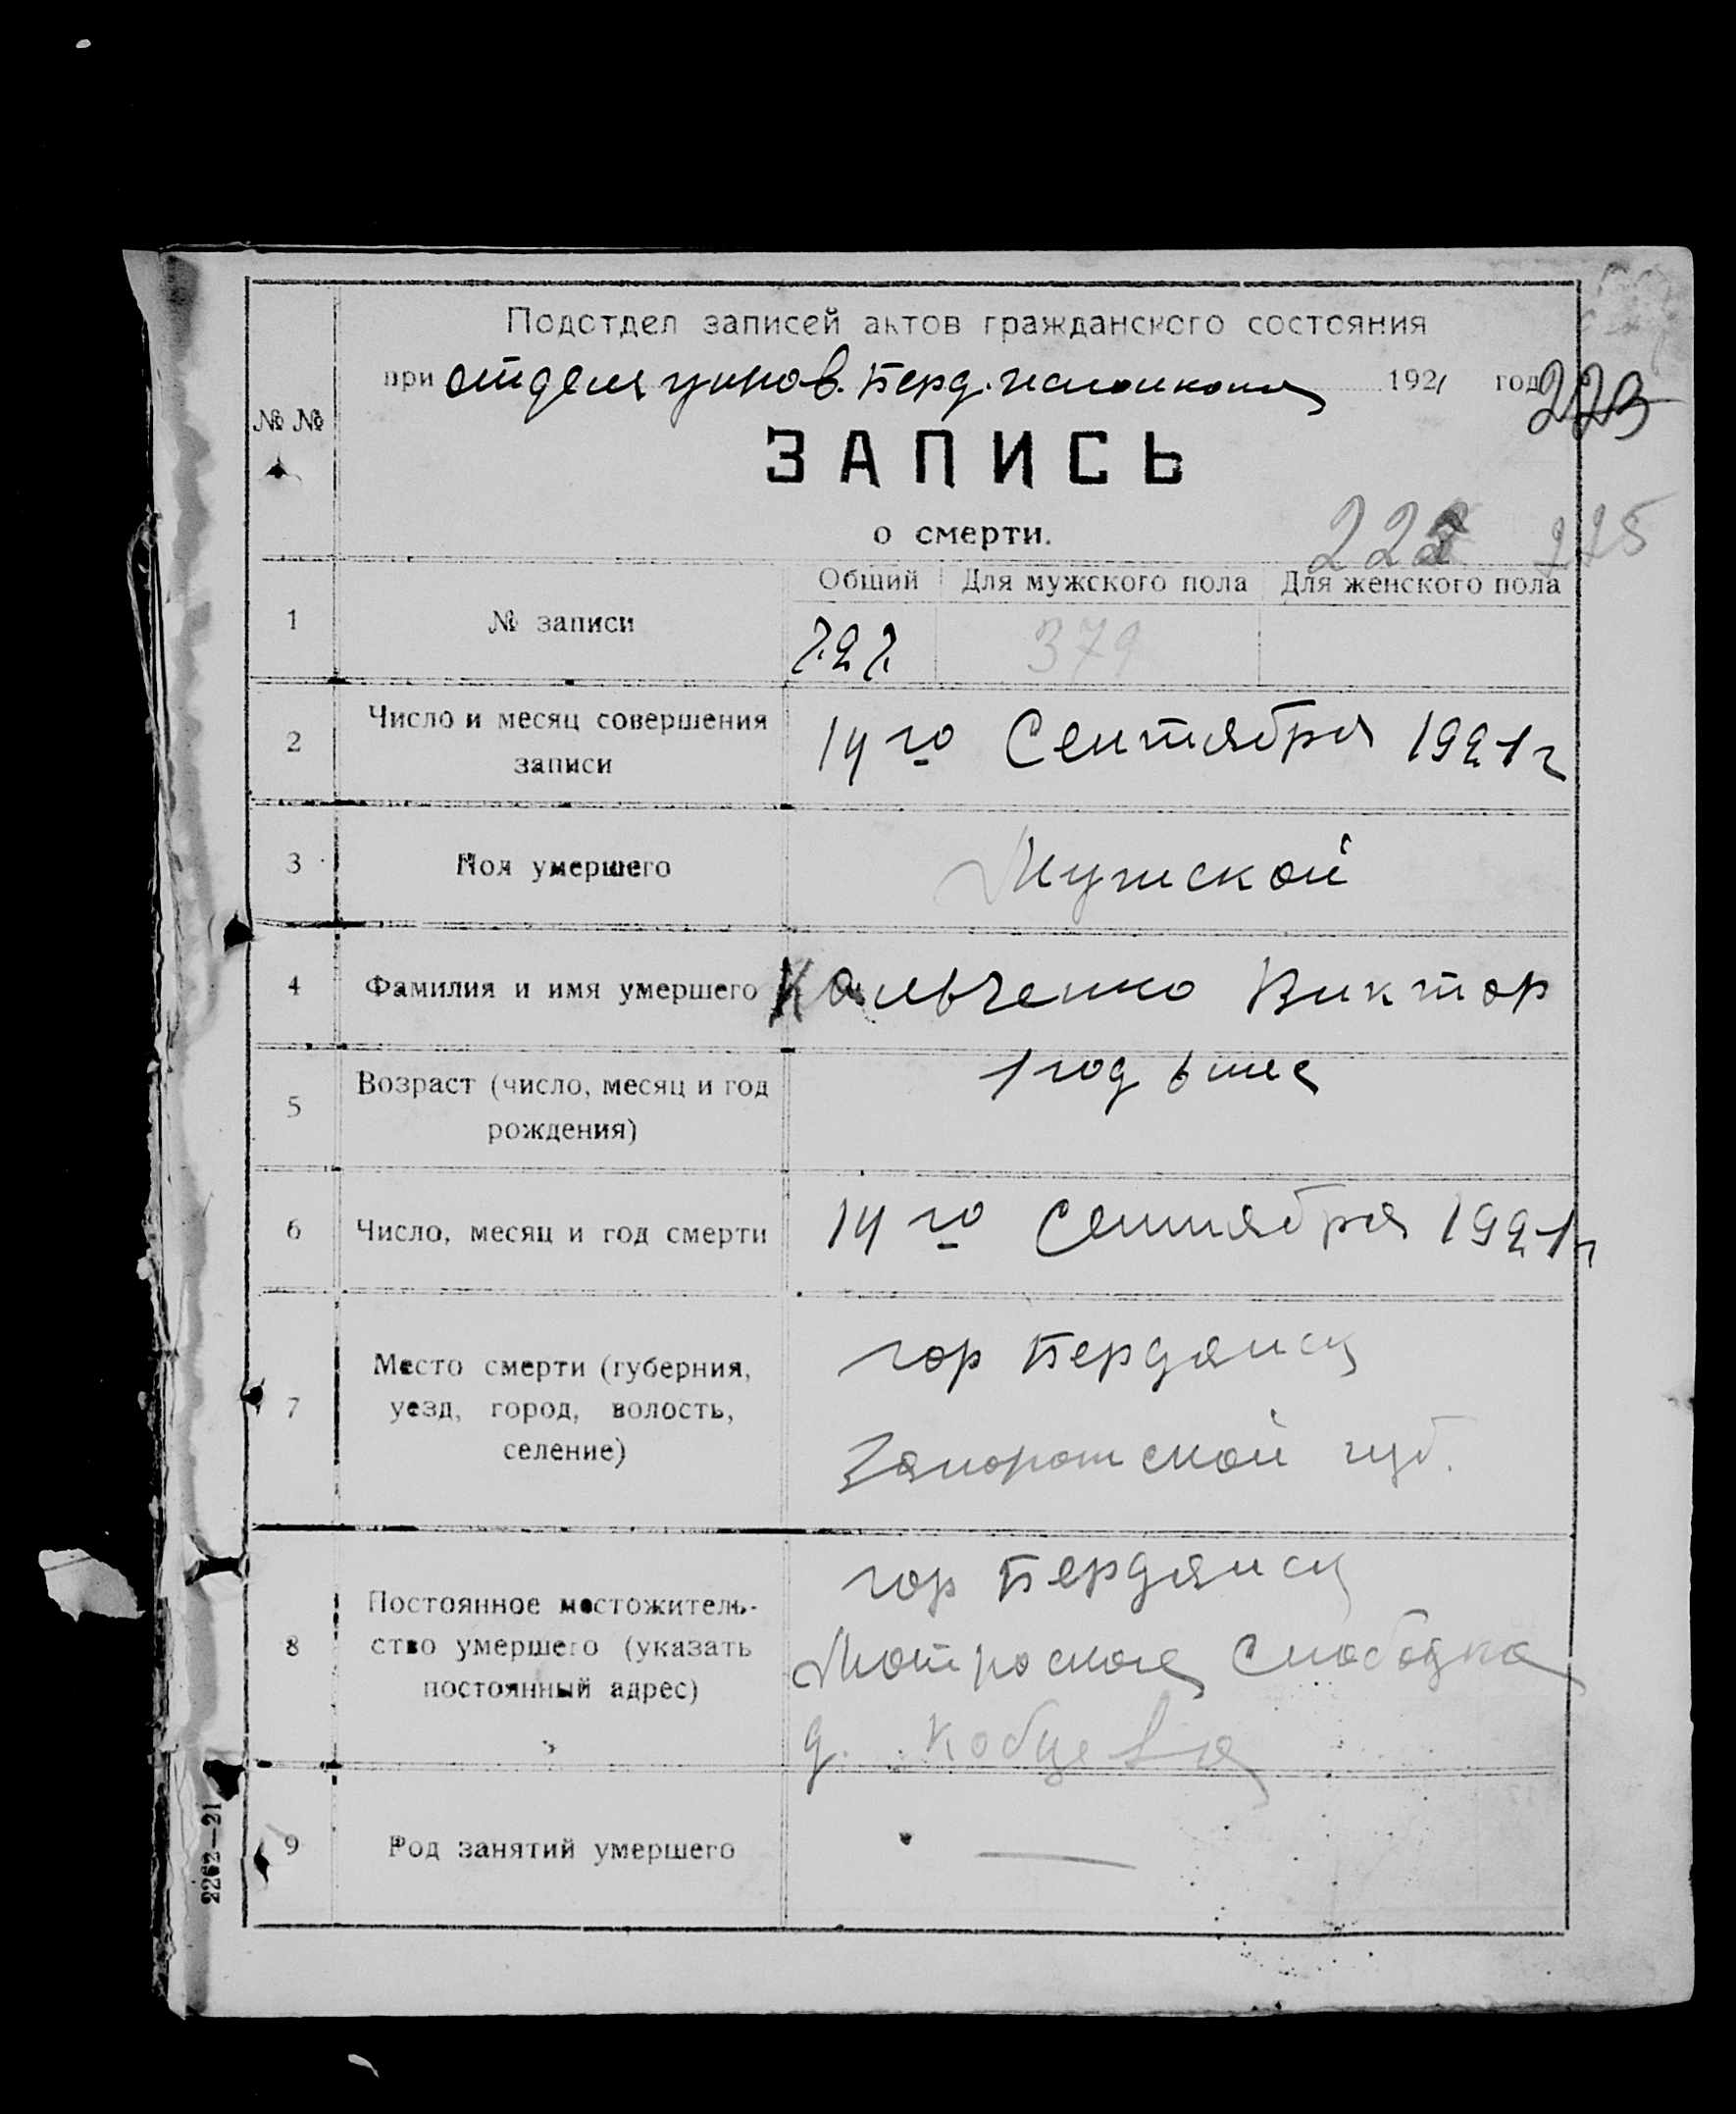 Подотдел записей актов гражданского состояния
при отделе управ. Берд. исполкома 1921 год
223
№ №
ЗАПИСЬ
о смерти.
222 225
Общий Для мужского пола Для женского пола
1 № записи 727 379
2 Число и месяц совершения
записи
14 го Сентября 1921 г
3 Пол умершего Мужской
4 Фамилия и имя умершего Кальченко Виктор
5 Возраст (число, месяц и год
рождения)
1 год 6 мес
6 Число, месяц и год смерти 14 го Сентября 1921 г
7 Место смерти (губерния,
уезд, город, волость,
селение)
гор Бердянск
Запорожской губ.
8 Постоянное местожитель-
ство умершего (указать
постоянный адрес)
гор Бердянск
Матросская Слободка
д. Кобцева
9 Род занятий умершего —
2262—21